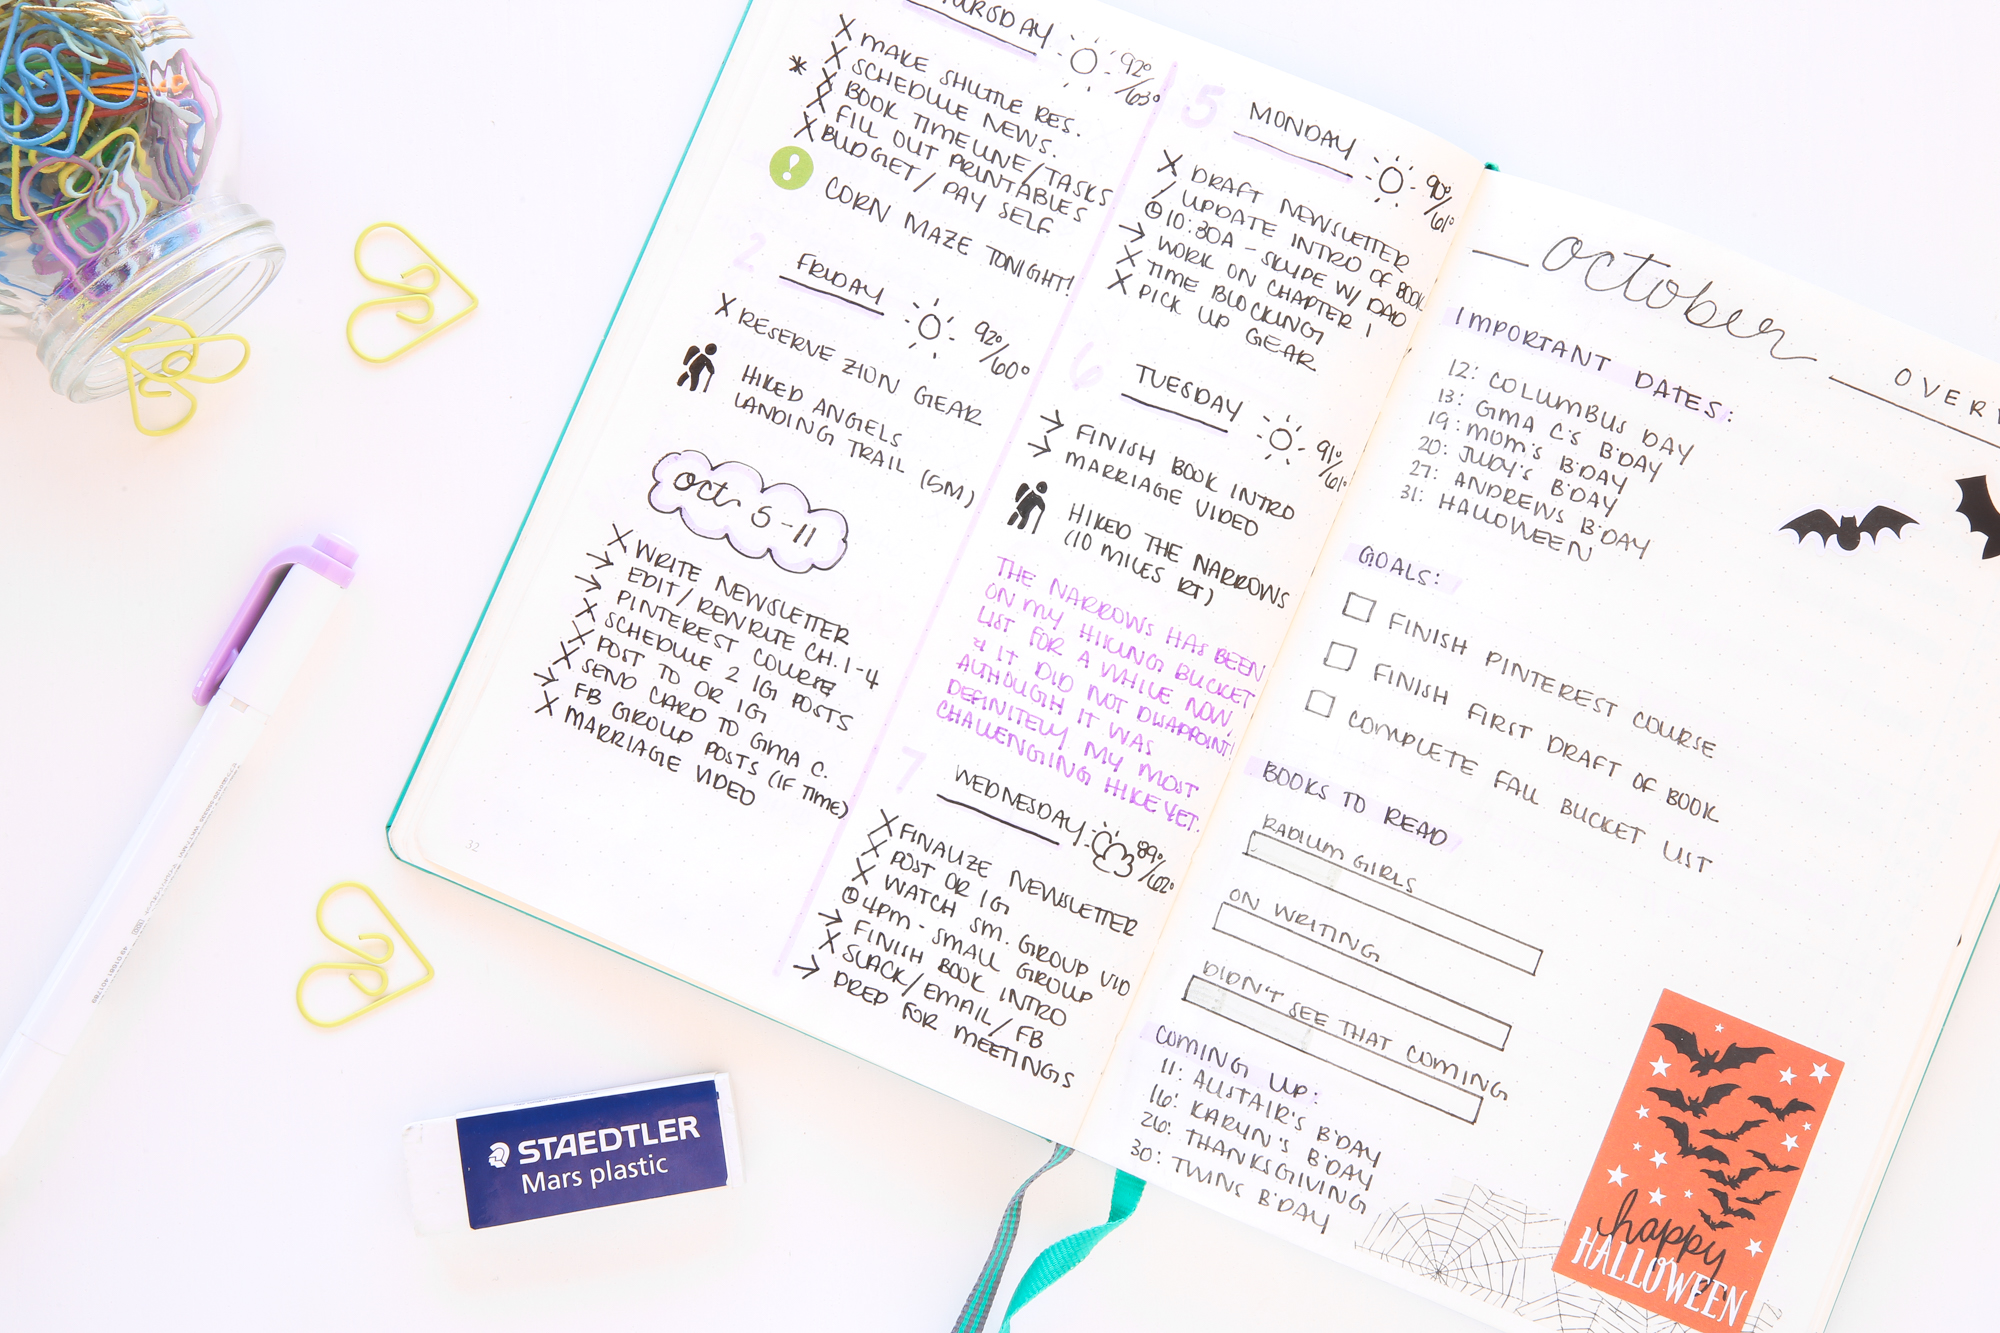 THURSDAY 92°/63°
X MAKE SHUTTLE RES.
X SCHEDULE NEWS.
* X BOOK TIMELINE/TASKS
X FILL OUT PRINTABLES
X BUDGET/PAY SELF
! CORN MAZE TONIGHT!
2 FRIDAY 92°/60°
X RESERVE ZION GEAR
HIKED ANGELS
LANDING TRAIL (5M)
oct 5-11
X WRITE NEWSLETTER
→ EDIT/REWRITE CH. 1-4
→ PINTEREST COURSE
X SCHEDULE 2 IG POSTS
X POST TO OR IG
X SEND CARD TO GMA C.
→ FB GROUP POSTS (IF TIME)
X MARRIAGE VIDEO
32
5 MONDAY 90°/61°
X DRAFT NEWSLETTER
/ UPDATE INTRO OF BOOK
10:30A - SKYPE W/ DAD
→ WORK ON CHAPTER 1
X TIME BLOCKING
X PICK UP GEAR
6 TUESDAY 91°/61°
→ FINISH BOOK INTRO
→ MARRIAGE VIDEO
HIKED THE NARROWS
(10 MILES RT)
THE NARROWS HAS BEEN
ON MY HIKING BUCKET
LIST FOR A WHILE NOW,
& IT DID NOT DISAPPOINT!
ALTHOUGH IT WAS
DEFINITELY MY MOST
CHALLENGING HIKE YET.
7 WEDNESDAY 89°/62°
X FINALIZE NEWSLETTER
X POST OR IG
X WATCH SM. GROUP VID
4PM - SMALL GROUP
→ FINISH BOOK INTRO
X SLACK/EMAIL/FB
→ PREP FOR MEETINGS
october OVER
IMPORTANT DATES:
12: COLUMBUS DAY
13: GMA C'S B'DAY
19: MOM'S B'DAY
20: JUDY'S B'DAY
27: ANDREWS B'DAY
31: HALLOWEEN
GOALS:
FINISH PINTEREST COURSE
FINISH FIRST DRAFT OF BOOK
COMPLETE FALL BUCKET LIST
BOOKS TO READ
RADIUM GIRLS
ON WRITING
DIDN'T SEE THAT COMING
COMING UP:
11: ALISTAIR'S B'DAY
16: KARYN'S B'DAY
26: THANKSGIVING
30: TWINS B'DAY
happy
HALLOWEEN
STAEDTLER
Mars plastic